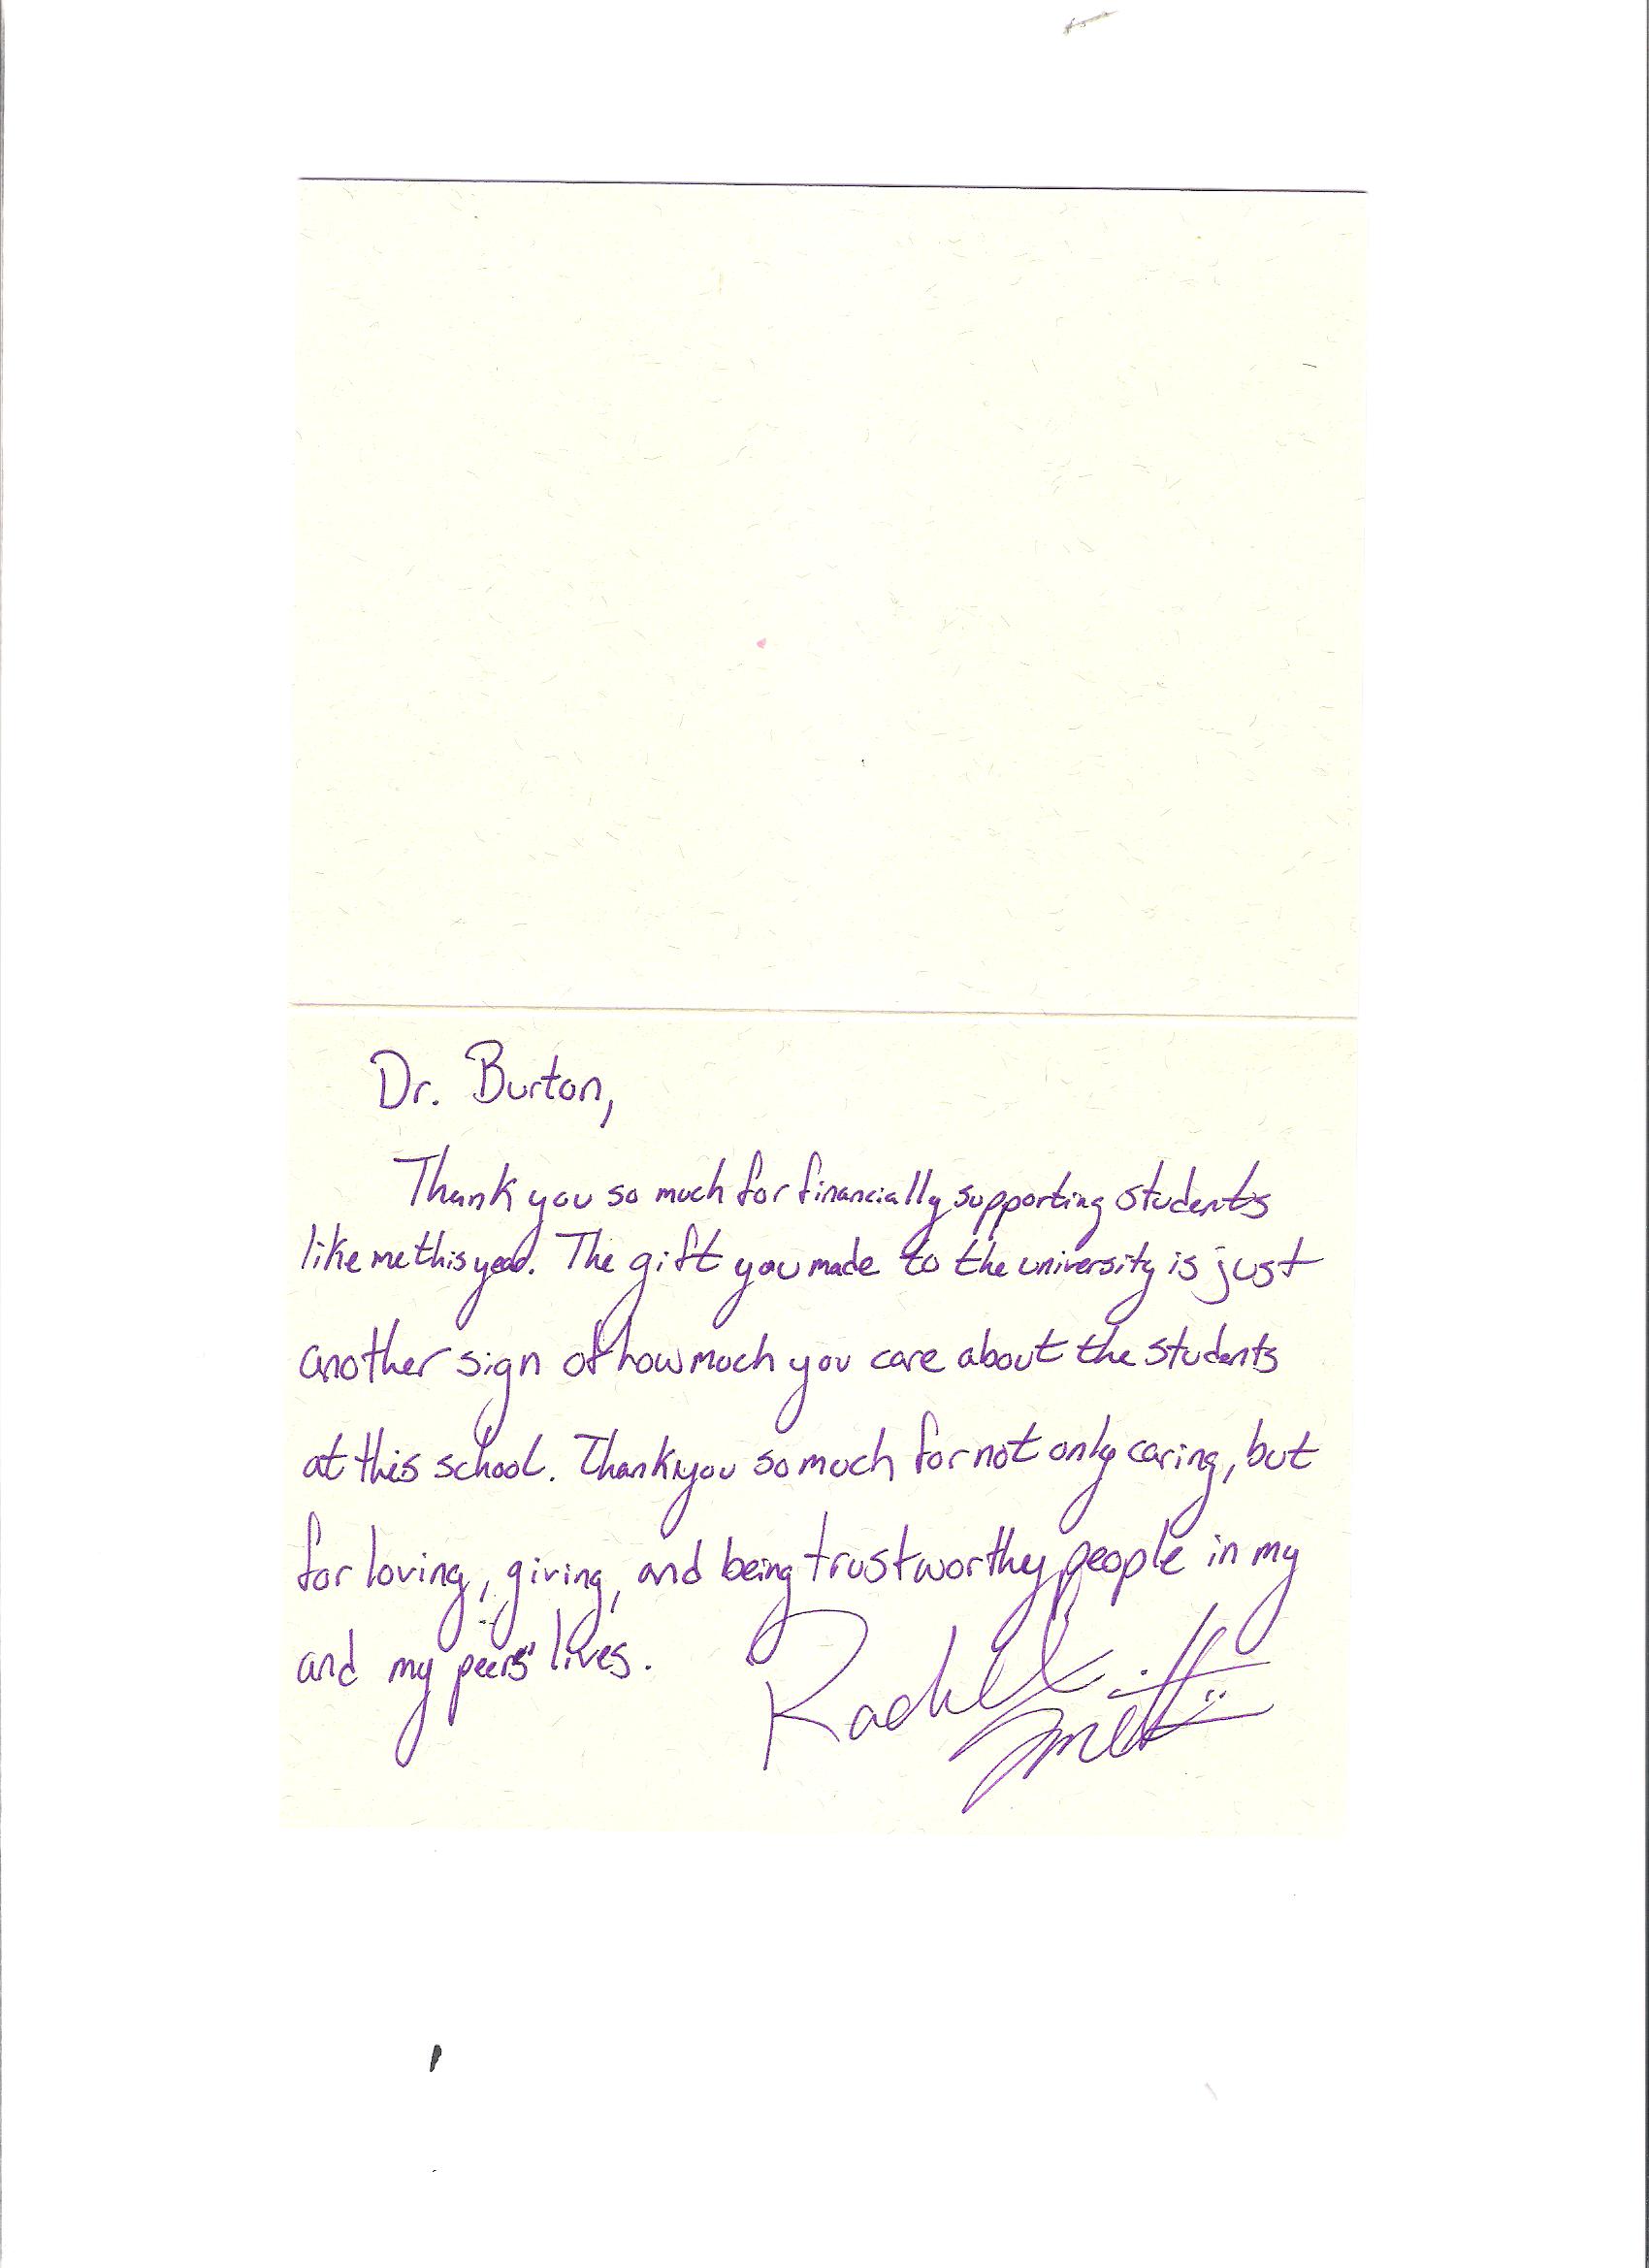 Dr. Burton,
Thank you so much for financially supporting students
like me this year. The gift you made to the university is just
another sign of how much you care about the students
at this school. Thank you so much for not only caring, but
for loving, giving, and being trustworthy people in my
and my peers' lives.